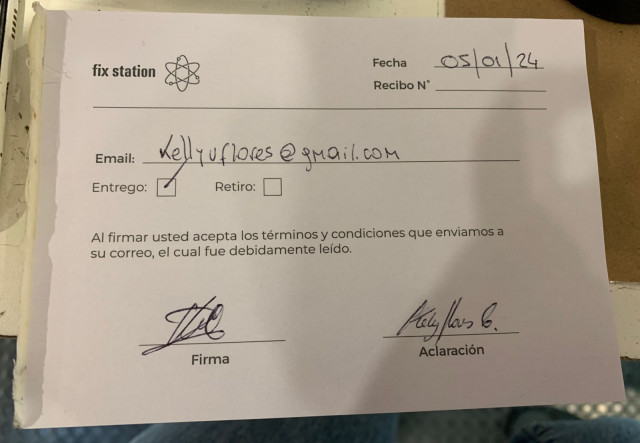 fix station
Fecha 05/01/24
Recibo N°
Email: Kellyvflores@gmail.com
Entrego: ✓ Retiro:
Al firmar usted acepta los términos y condiciones que enviamos a
su correo, el cual fue debidamente leído.
Kelly flores G.
Firma
Aclaración